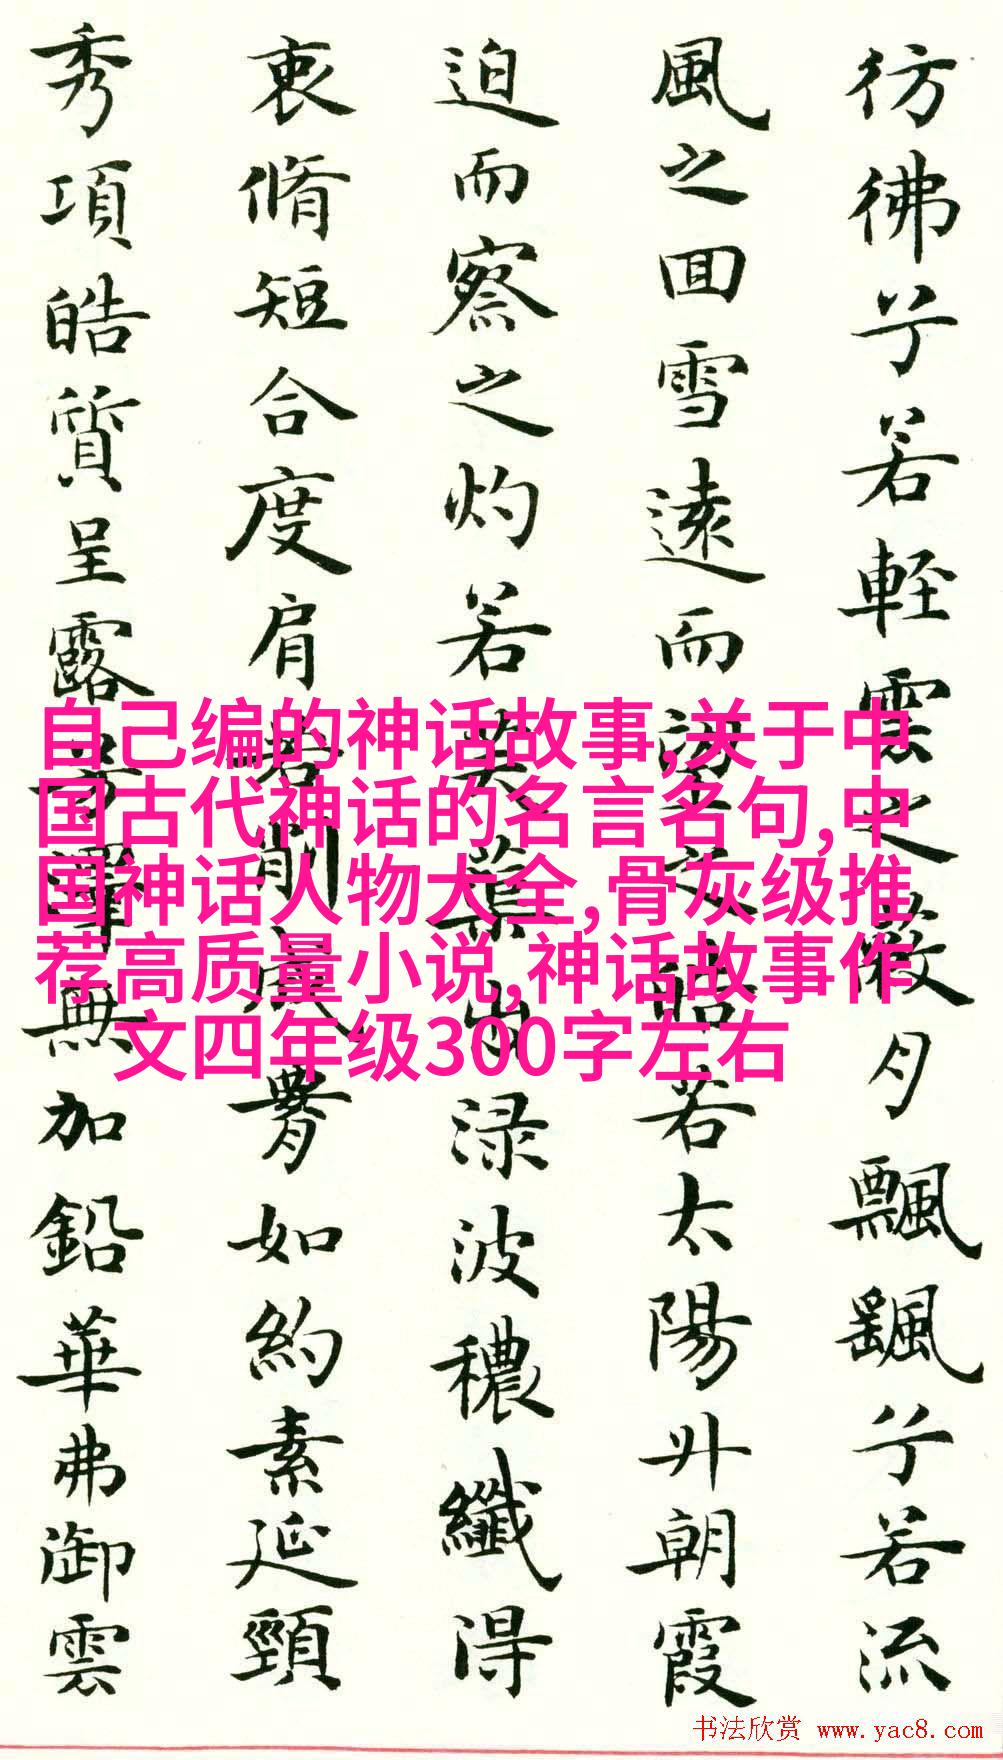 彷彿兮若輕雲之蔽月飄颻兮若流
風之回雪遠而望之皎若太陽升朝霞
迫而察之灼若芙蕖出淥波穠纖得
衷脩短合度肩若削成腰如約素延頸
秀項皓質呈露芳澤無加鉛華弗御雲
自己编的神话故事,关于中
国古代神话的名言名句,中
国神话人物大全,骨灰级推
荐高质量小说,神话故事作
文四年级300字左右
书法欣赏 www.yac8.com